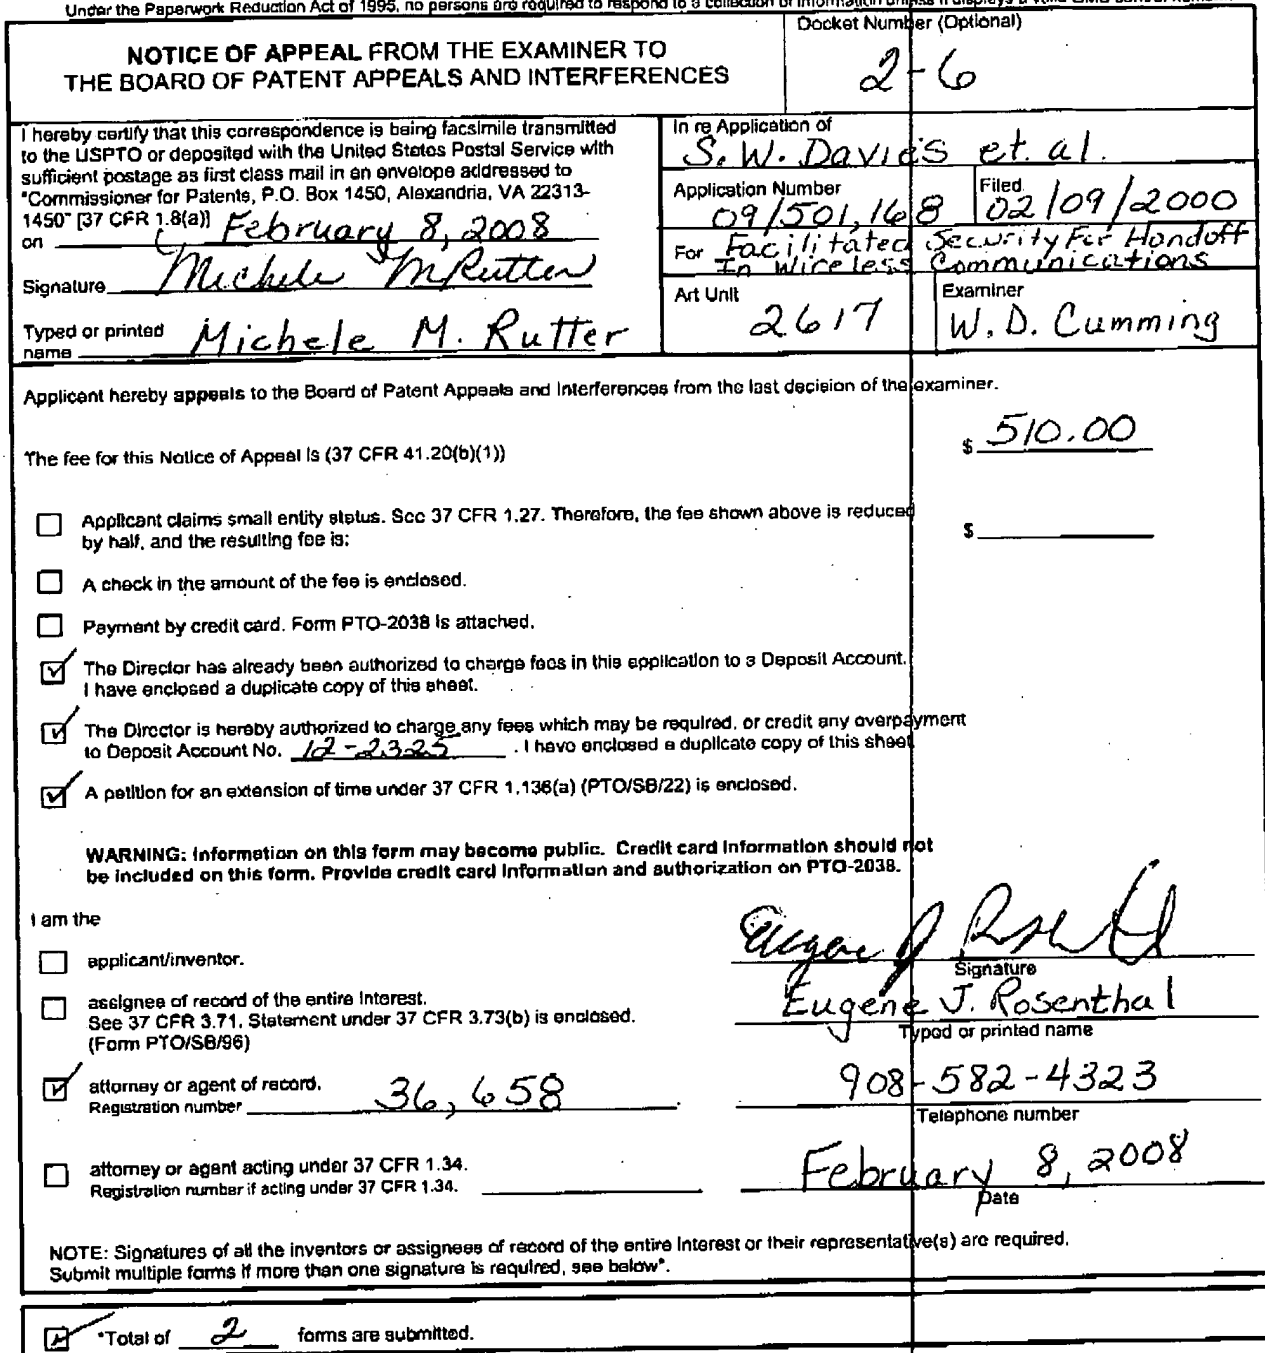 Under the Paperwork Reduction Act of 1995, no persons are required to respond to a collection of information unless it displays a valid OMB control
NOTICE OF APPEAL FROM THE EXAMINER TO
THE BOARD OF PATENT APPEALS AND INTERFERENCES
Docket Number (Optional)
2-6
I hereby certify that this correspondence is being facsimile transmitted
to the USPTO or deposited with the United States Postal Service with
sufficient postage as first class mail in an envelope addressed to
"Commissioner for Patents, P.O. Box 1450, Alexandria, VA 22313-
1450" [37 CFR 1.8(a)]
on February 8, 2008
Signature Michele M Rutter
Typed or printed
name Michele M. Rutter
In re Application of
S. W. Davies et. al.
Application Number
09/501,168
Filed
02/09/2000
For Facilitated Security For Handoff
In Wireless Communications
Art Unit
2617
Examiner
W. D. Cumming
Applicant hereby appeals to the Board of Patent Appeals and Interferences from the last decision of the examiner.
The fee for this Notice of Appeal is (37 CFR 41.20(b)(1))
$ 510.00
Applicant claims small entity status. See 37 CFR 1.27. Therefore, the fee shown above is reduced
by half, and the resulting fee is:
$
A check in the amount of the fee is enclosed.
Payment by credit card. Form PTO-2038 is attached.
The Director has already been authorized to charge fees in this application to a Deposit Account.
I have enclosed a duplicate copy of this sheet.
The Director is hereby authorized to charge any fees which may be required, or credit any overpayment
to Deposit Account No. 12-2325. I have enclosed a duplicate copy of this sheet
A petition for an extension of time under 37 CFR 1.136(a) (PTO/SB/22) is enclosed.
WARNING: Information on this form may become public. Credit card information should not
be included on this form. Provide credit card information and authorization on PTO-2038.
I am the
applicant/inventor.
assignee of record of the entire interest.
See 37 CFR 3.71. Statement under 37 CFR 3.73(b) is enclosed.
(Form PTO/SB/96)
attorney or agent of record.
Registration number 36,658
attorney or agent acting under 37 CFR 1.34.
Registration number if acting under 37 CFR 1.34.
Eugene J Rosenthal
Signature
Eugene J. Rosenthal
Typed or printed name
908-582-4323
Telephone number
February 8, 2008
Date
NOTE: Signatures of all the inventors or assignees of record of the entire interest or their representative(s) are required.
Submit multiple forms if more than one signature is required, see below*.
*Total of 2 forms are submitted.